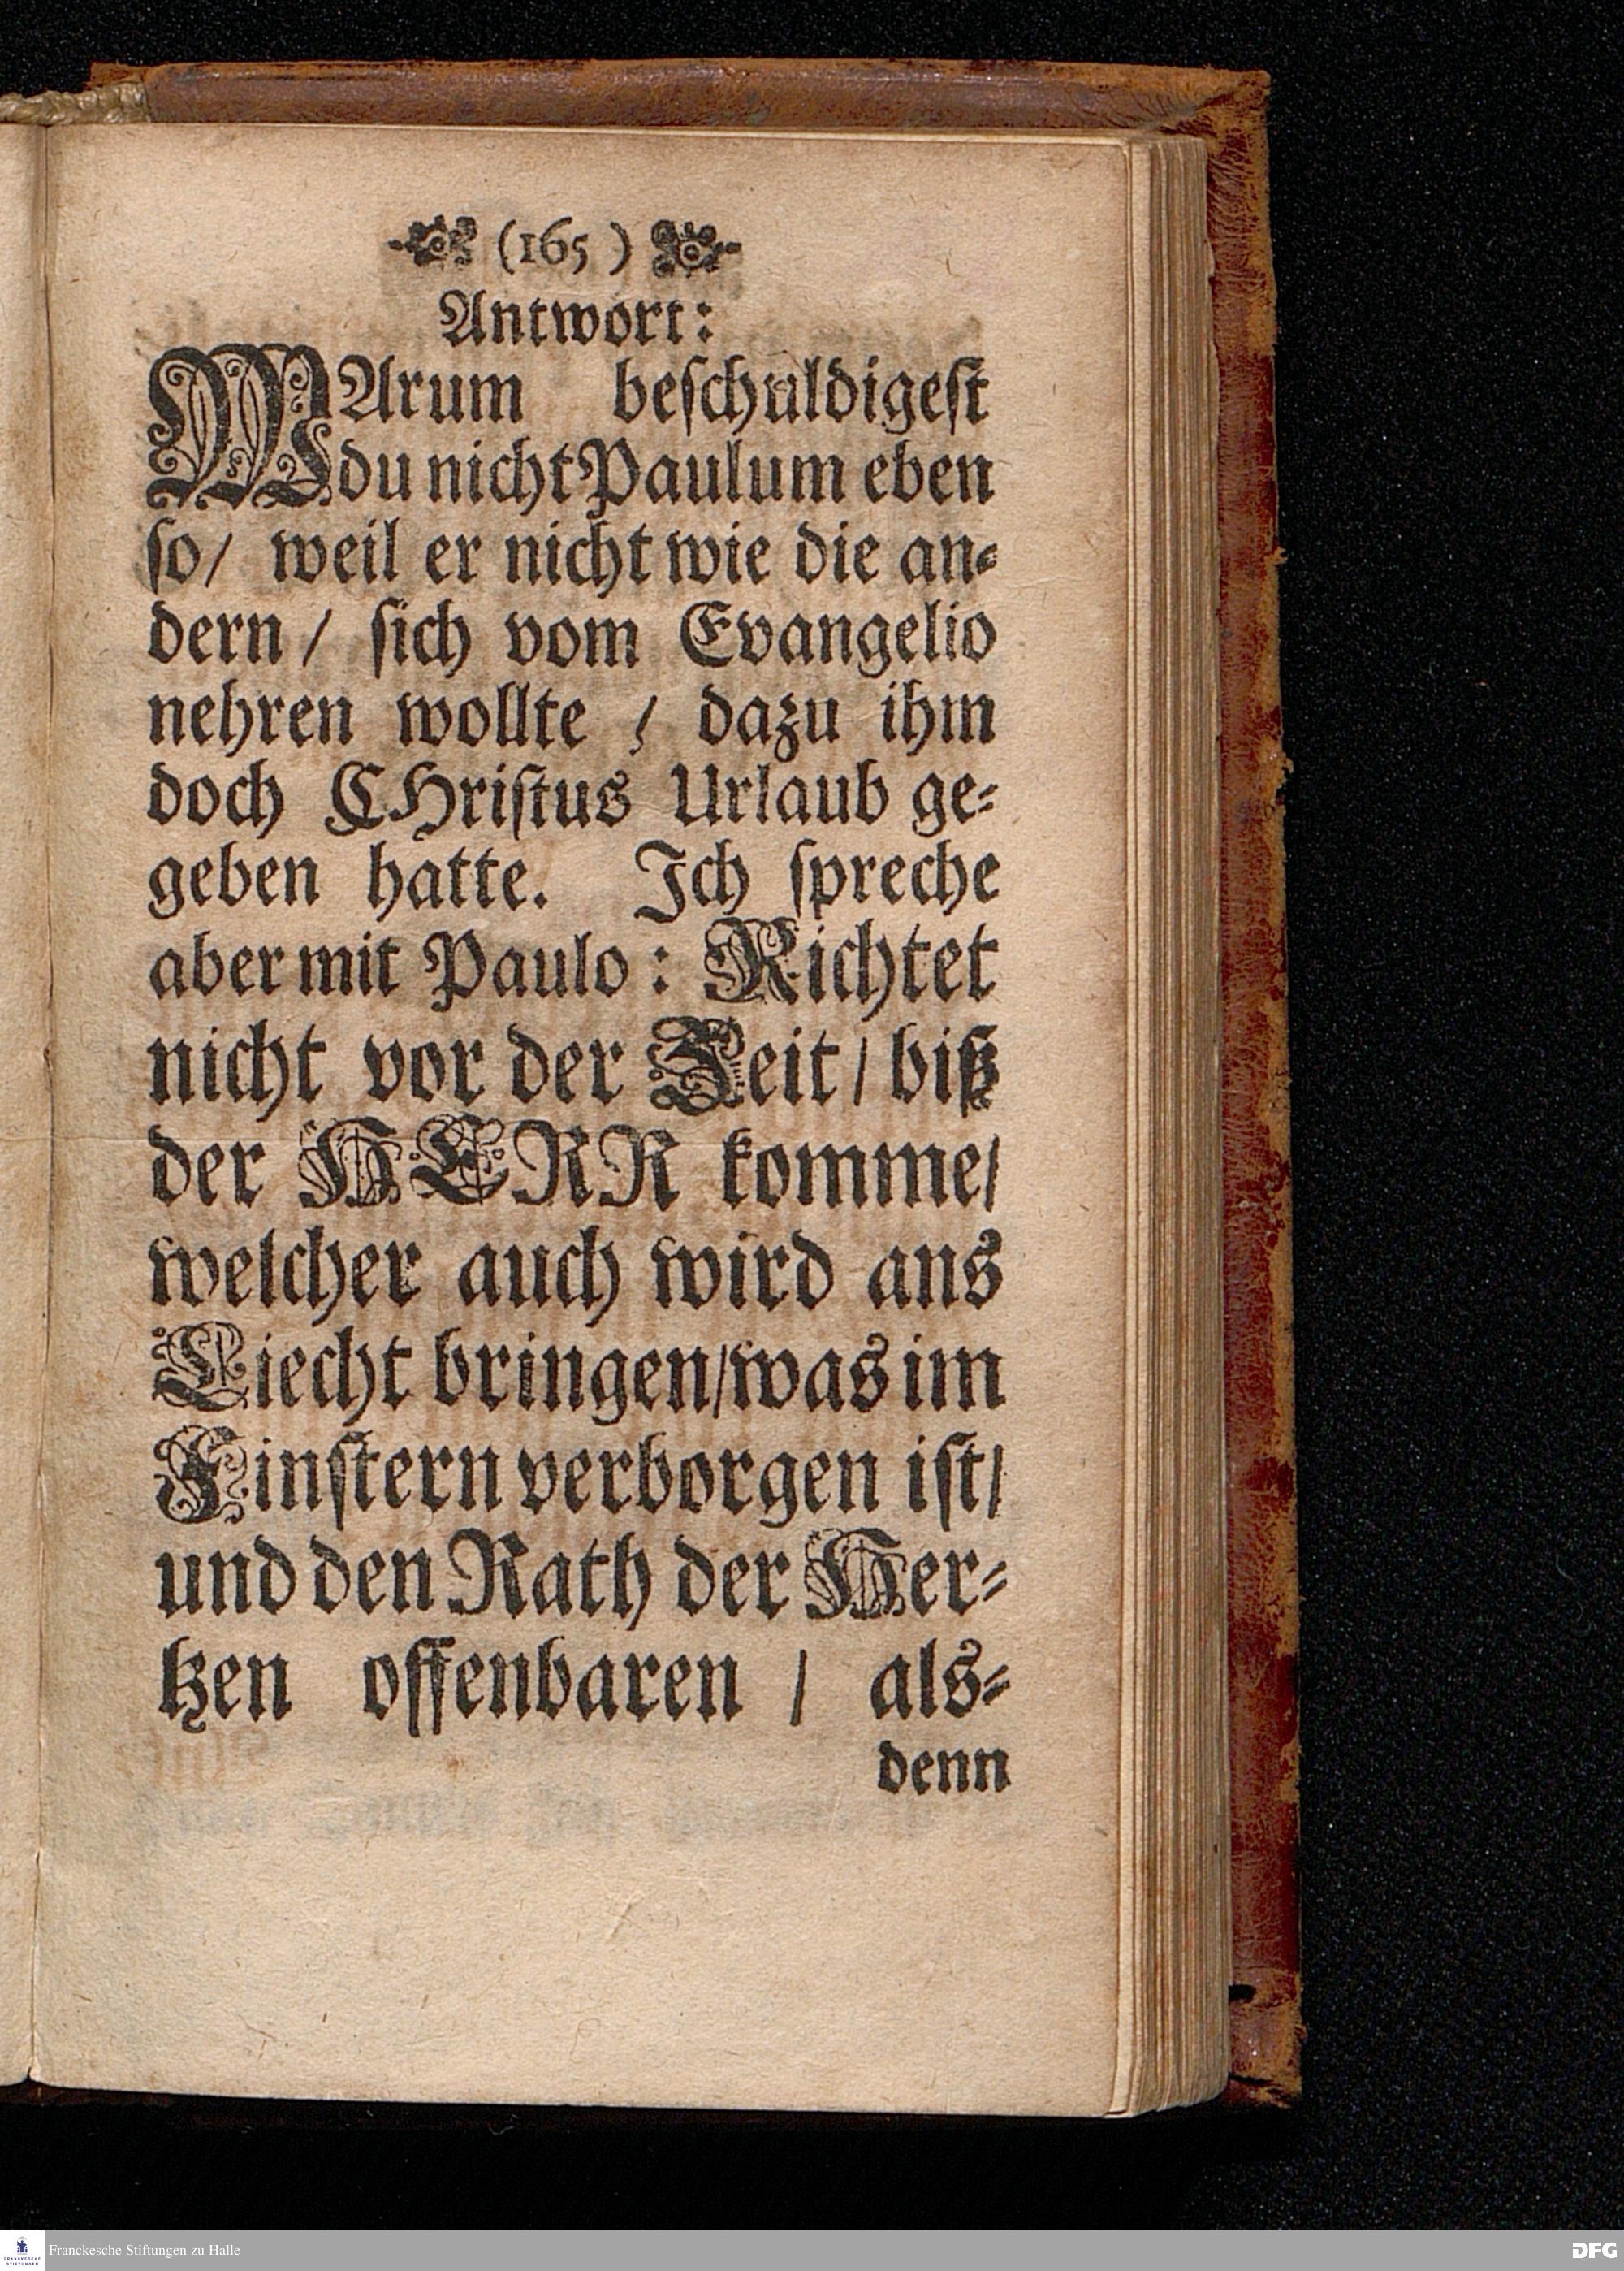 (165)
Antwort:
WArum beschuldigest
du nicht Paulum eben
so/ weil er nicht wie die an-
dern / sich vom Evangelio
nehren wollte / dazu ihm
doch CHristus Urlaub ge-
geben hatte. Ich spreche
aber mit Paulo: Richtet
nicht vor der Zeit / biß
der HERR komme/
welcher auch wird ans
Liecht bringen/was im
Finstern verborgen ist/
und den Rath der Her-
tzen offenbaren / als-
denn
Franckesche Stiftungen zu Halle
DFG
FRANCKESCHE
STIFTUNGEN